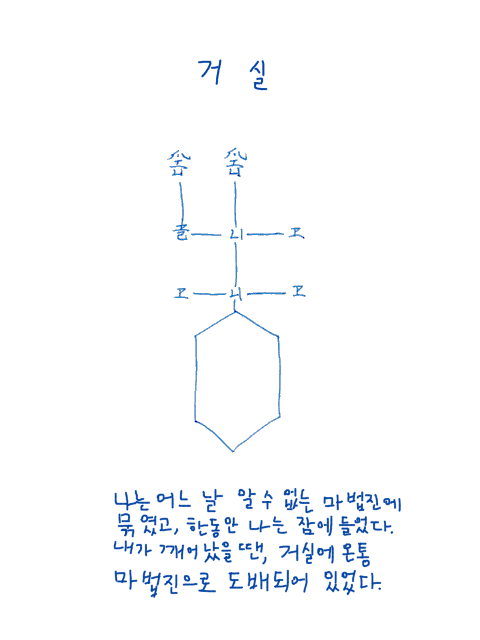 거 실
쏨 쏨
졸 니 고
고 니 고
나는 어느 날 알 수 없는 마법진에
묶였고, 한동안 나는 잠에 들었다.
내가 깨어났을 땐, 거실에 온통
마법진으로 도배되어 있었다.